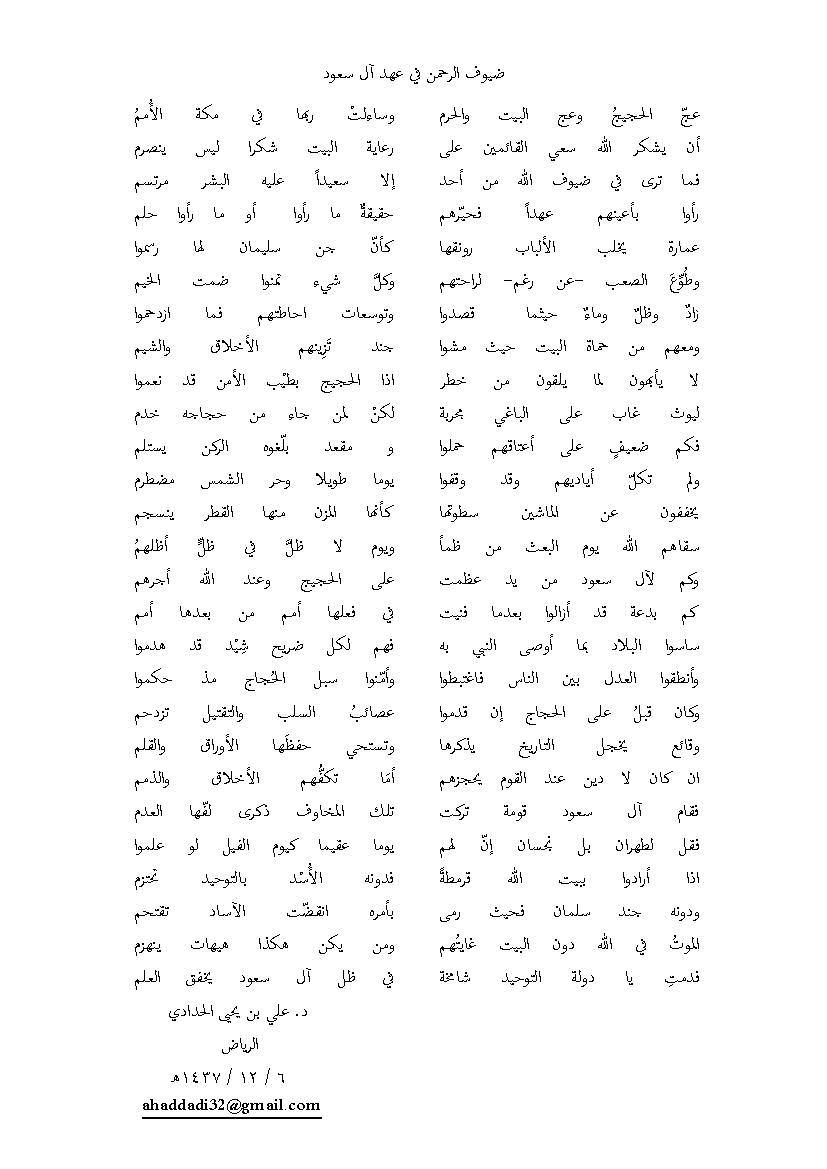 ضيوف الرحمن في عهد آل سعود
عجّ الحجيجُ وعج البيت والحرم وساءلتْ ربها في مكة الأُممُ
أن يشكر الله سعي القائمين على رعاية البيت شكرا ليس ينصرم
فما ترى في ضيوف الله من أحد إلا سعيداً عليه البشر مرتسم
رأوا بأعينهم عهداً فحيّرهم حقيقةٌ ما رأوا أو ما رأوا حلم
عمارة يخلب الألباب رونقها كأنّ جن سليمان لها رسموا
وطُوِّعَ الصعب -عن رغم- لراحتهم وكلَّ شيء تمنوا ضمت الخيم
زادٌ وظلٌ وماءٌ حيثما قصدوا وتوسعات احاطتهم فما ازدحموا
ومعهم من حماة البيت حيث مشوا جند تَزِينهم الأخلاق والشيم
لا يأبهون لما يلقون من خطر اذا الحجيج بطيْب الأمن قد نعموا
ليوث غاب على الباغي مجربة لكنْ لمن جاء من حجاجه خدم
فكم ضعيفٍ على أعتاقهم حملوا و مقعد بلّغوه الركن يستلم
ولم تكلّ أياديهم وقد وقفوا يوما طويلا وحر الشمس مضطرم
يخففون عن الماشين سطوتها كأنها المزن منها القطر ينسجم
سقاهم الله يوم البعث من ظمأ ويوم لا ظلَّ في ظلٍّ أظلهمُ
وكم لآل سعود من يد عظمت على الحجيج وعند الله أجرهم
كم بدعة قد أزالوا بعدما فنيت في فعلها أمم من بعدها أمم
ساسوا البلاد بما أوصى النبي به فهم لكل ضريح شِيْد قد هدموا
وأنطقوا العدل بين الناس فاغتبطوا وأمّنوا سبل الحُجاج مذ حكموا
وكان قبلُ على الحجاج إن قدموا عصائبُ السلب والتقتيل تزدحم
وقائع يخجل التاريخ يذكرها وتستحي حفظَها الأوراق والقلم
ان كان لا دين عند القوم يحجزهم أمَا تكفُّهم الأخلاق والذمم
فقام آل سعود قومة تركت تلك المخاوف ذكرى لفّها العدم
فقل لطهران بل نجسان إنّ لهم يوما عقيما كيوم الفيل لو علموا
اذا أرادوا ببيت الله قرمطةً فدونه الأُسْد بالتوحيد تحتزم
ودونه جند سلمان فحيث رمى بأمره انقضّت الآساد تقتحم
الموتُ في الله دون البيت غايتُهم ومن يكن هكذا هيهات ينهزم
فدمتِ يا دولة التوحيد شامخة في ظل آل سعود يخفق العلم
د. علي بن يحيى الحدادي
الرياض
٦ / ١٢ / ١٤٣٧هـ
ahaddadi32@gmail.com